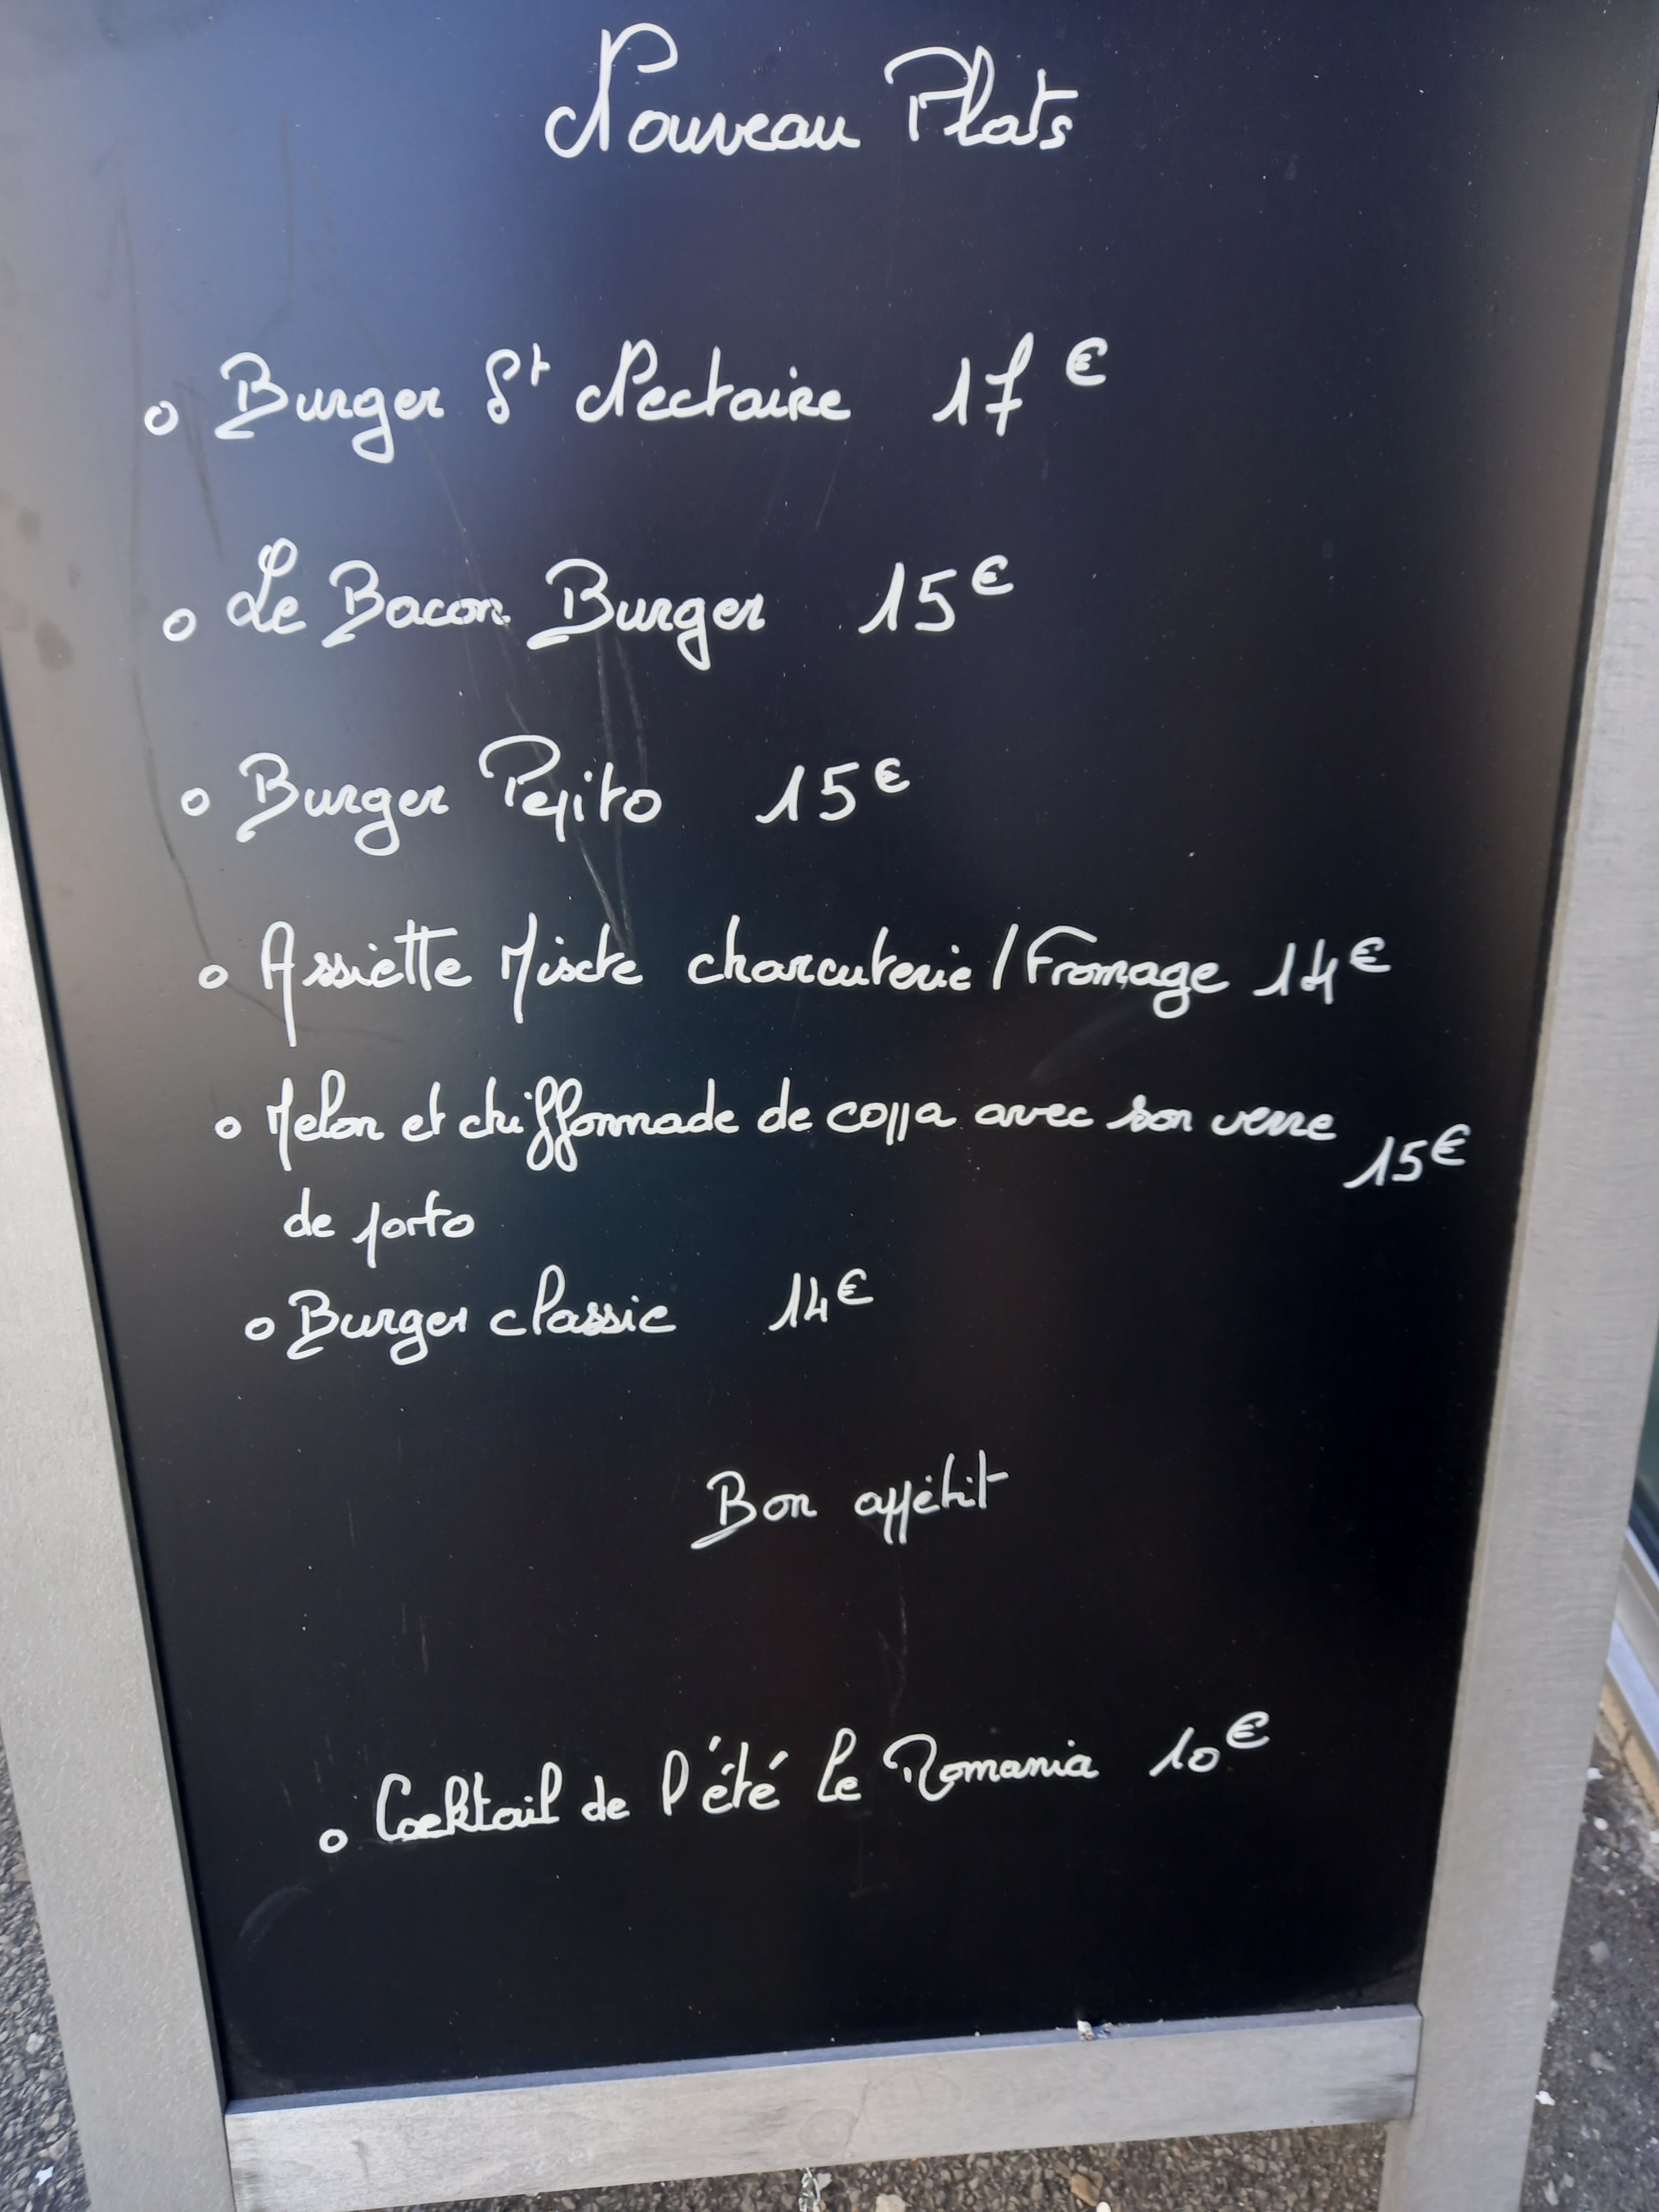 Nouveau Plats
o Burger St Nectaire 17€
o Le Bacon Burger 15€
o Burger Pepito 15€
o Assiette Mixte charcuterie / Fromage 14€
o Melon et chiffonnade de coppa avec son verre 15€
de porto
o Burger classic 14€
Bon appétit
o Cocktail de l'été Le Romania 10€